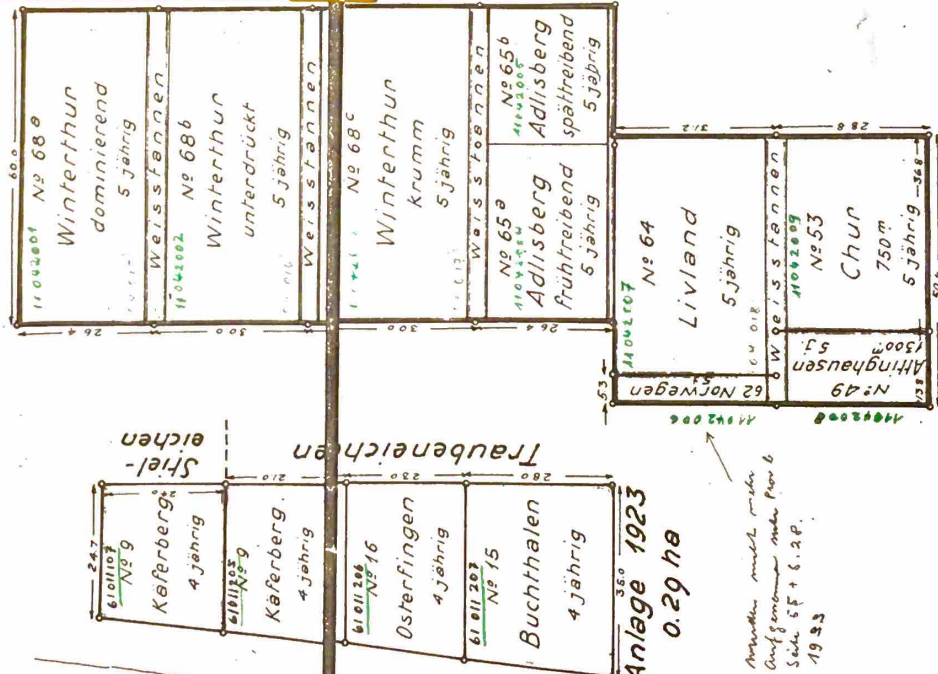 60.0
11042001 Nº 68a
Winterthur
dominierend
5 jährig
Weisstannen
11042002 Nº 68b
Winterthur
unterdrückt
5 jährig
Weisstannen
Nº 68c
Winterthur
krumm
5 jährig
Weisstannen
Nº 65b
11042005
Adlisberg
spättreibend
5 jährig
Nº 65a
Adlisberg
frühtreibend
5 jährig
26.4
30.0
30.0
26.4
31.2
28.8
11042007
Nº 64
Livland
5 jährig
Weisstannen
11042009
Nº 53
Chur
750m
5 jährig
36.8
5.3
62 Norwegen
11042006
Nº 49
Attinghausen
1300m 5 j.
13.8
11042008
Stiel-
eichen
Traubeneichen
24.7
24.0
21.0
23.0
28.0
61011107
Nº 9
Käferberg
4 jährig
61011205
Nº 9
Käferberg
4 jährig
61011206
Nº 16
Osterfingen
4 jährig
61011207
Nº 15
Buchthalen
4 jährig
Anlage 1923
0.29 ha
wurden nicht mehr
aufgenommen
Seite
1933